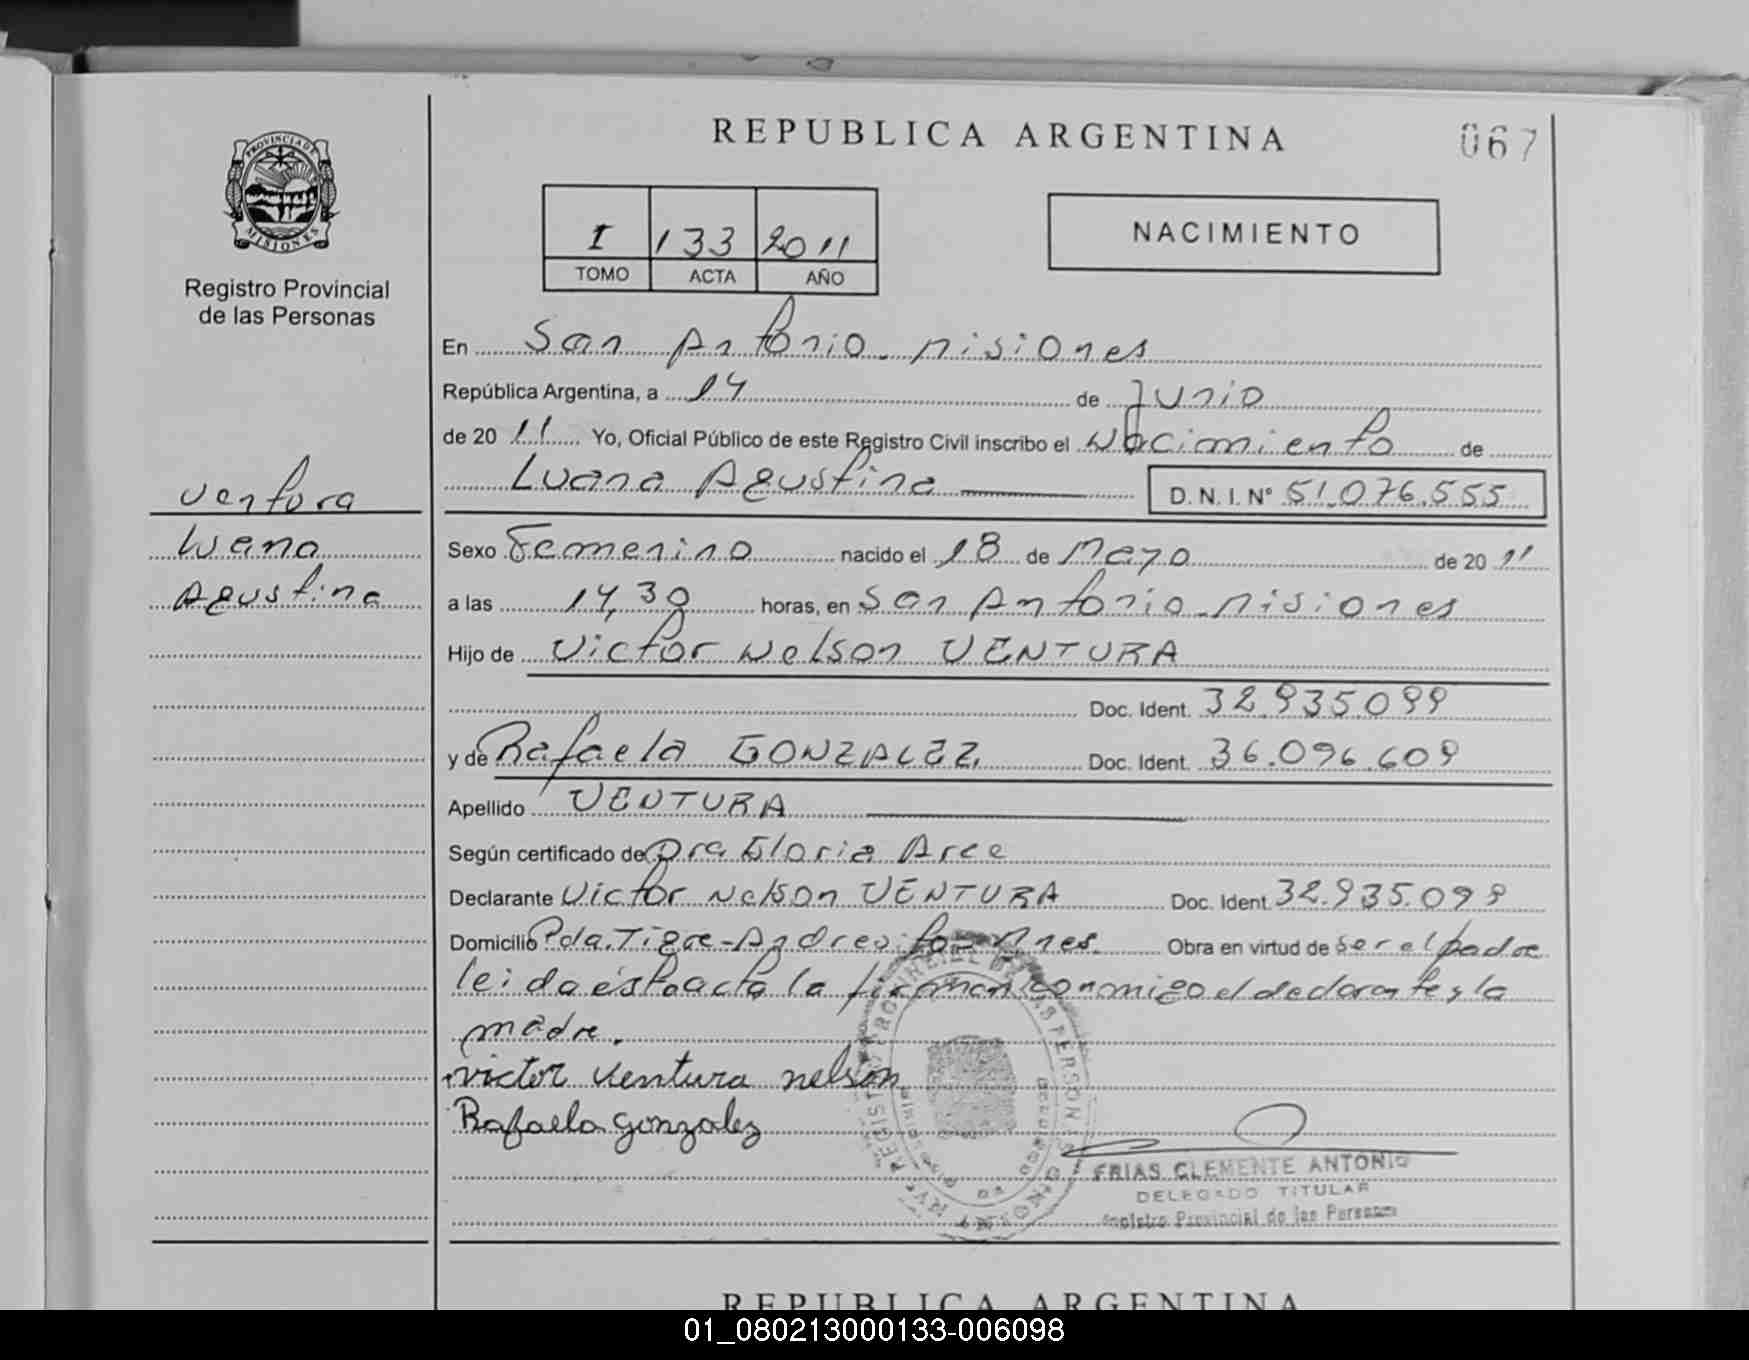 REPUBLICA ARGENTINA
067
PROVINCIA DE
MISIONES
Registro Provincial
de las Personas
I 133 2011
TOMO ACTA AÑO
NACIMIENTO
En San Antonio - Misiones
República Argentina, a 14 de Junio
de 2011 Yo, Oficial Público de este Registro Civil inscribo el Nacimiento de
Luana Agustina D.N.I. Nº 51.076.555
Ventura
Luana
Agustina
Sexo Femenino nacido el 18 de Mayo de 2011
a las 14,30 horas, en San Antonio - Misiones
Hijo de Victor Nelson VENTURA
Doc. Ident. 32.935.099
y de Rafaela GONZALEZ Doc. Ident. 36.096.609
Apellido VENTURA
Según certificado de Dra Gloria Arce
Declarante Victor Nelson VENTURA Doc. Ident. 32.935.099
Domicilio Pda. Tigre - Andresito - Mnes. Obra en virtud de ser el padre
leida ésta acta la firman conmigo el declarante y la
madre.
victor ventura nelson
Rafaela gonzalez
FRIAS CLEMENTE ANTONIO
DELEGADO TITULAR
Registro Provincial de las Personas
REPUBLICA ARGENTINA
01_080213000133-006098